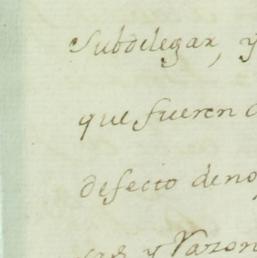 Subdelegar, y
que fueren
defecto de no
y Razon